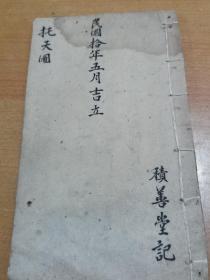 積善堂記
民國拾年五月吉立
托天圖